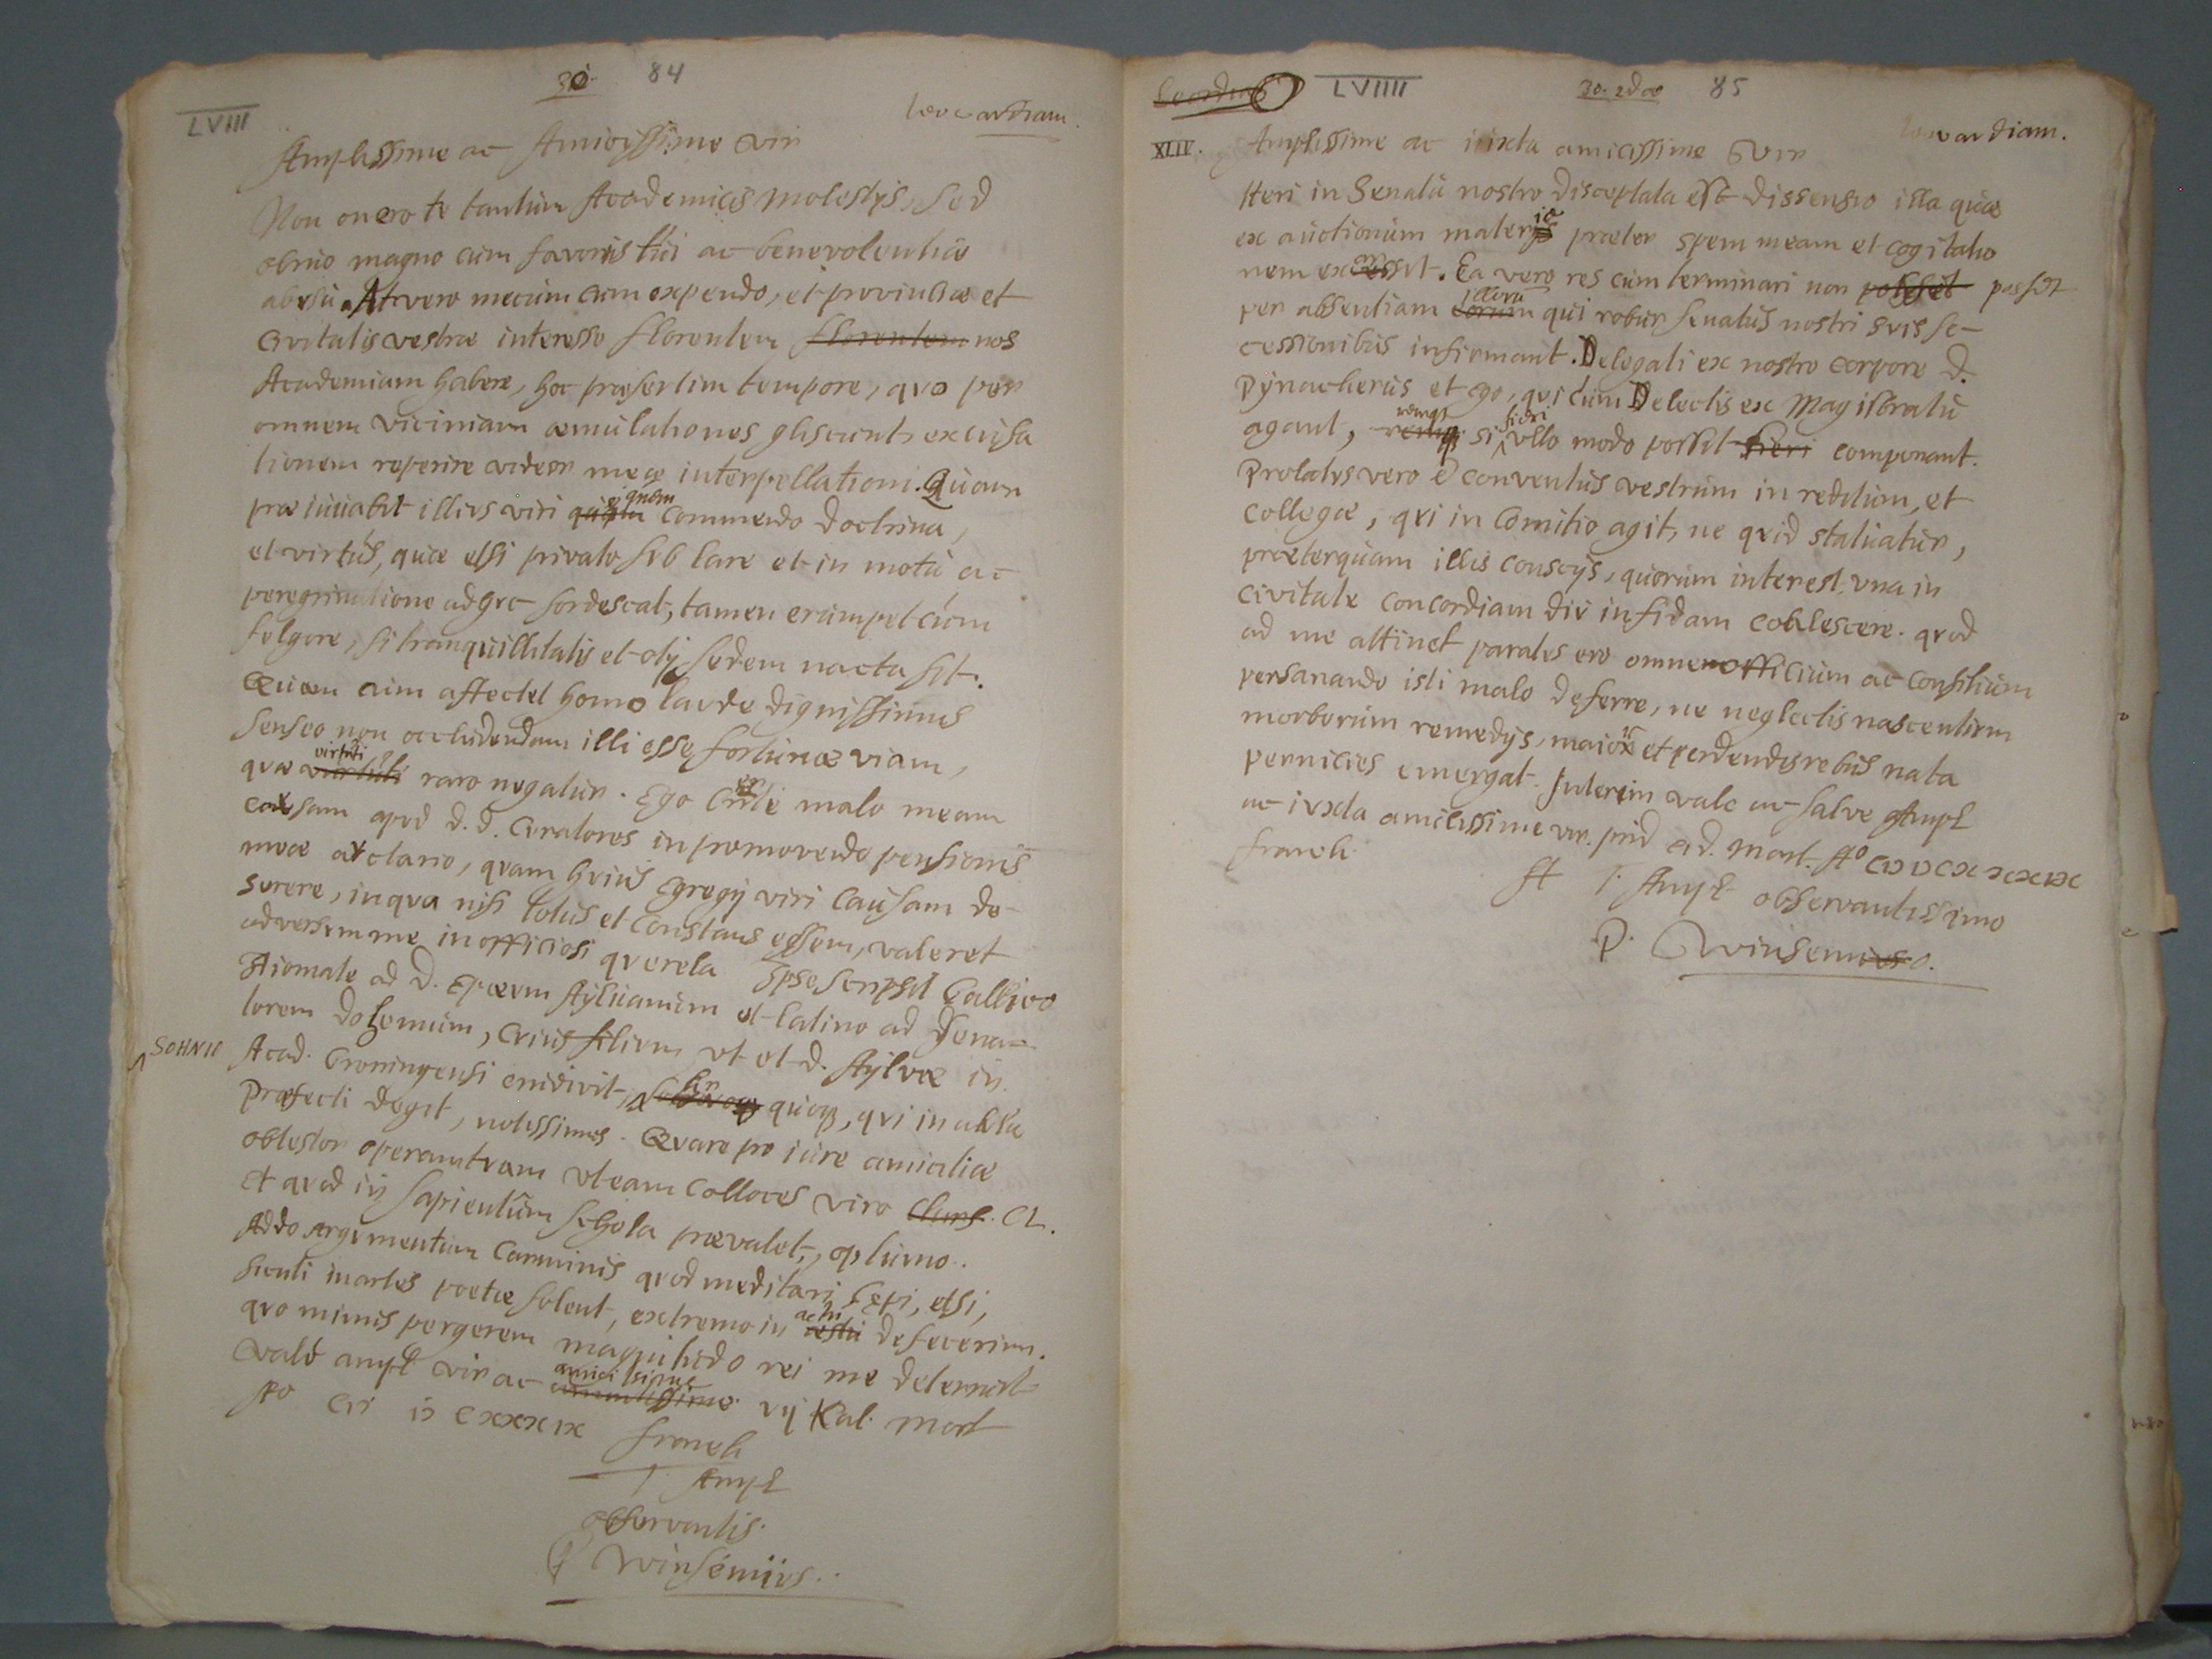 LVIII
30. 84
Leovardiam.
Amplissime ac Amicissime vir
Non onero te tantum Academicis molestijs, sed
obruo magno cum favoris tui ac benevolentiae
abusu. At vero mecum cum expendo, et provinciae et
civitatis vestrae interesse florentem florentem nos
Academiam habere, hoc praesertim tempore, quo per
omnem viciniam aemulationes gliscunt, excusa
tionem reperire videor meae interpellationi. Quam
praeiuvabit illius viri quem commendo doctrina,
et virtus, quae etsi privato sub lare et in motu ac
peregrinatione adhuc sordescat, tamen erumpet cum
fulgore, si tranquillitatis et otij sedem nacta sit.
Quam cum affectet homo laude dignissimus
censeo non occludendam illi esse fortunae viam,
quae virtuti virtuti raro negatur. Ego certe malo meam
causam apud d.d. Curatores in promovendo pensionis
meae auctario, quam huius egregij viri causam de-
serere, in qua nisi totus et constans essem, valeret
adversum me inofficiosi querela Ipse scripsit Gallico
Idiomate ad D. Epaeum Aylvanum et latino ad Sena-
torem Dozemum, cuius filium ut et d. Aylvae in
SOHNII
Acad. Groningensi erudivit, quoque, qui in aula
Praefecti degit, notissimus. Quare pro iure amicitiae
obtestor operam tuam ut eam colloces viro Clariss. Cl.
et quod in sapientum schola praevalet, optumo..
Addo argumentum Carminis quod meditari coepi, etsi,
sicuti inertes poetae solent, extremo in actu defecerim.
quo minus pergerem magnitudo rei me deterruit
Vale ampl vir ac amicissime vij Kal. Mart
Ao CIƆ IƆ CXXXIX franek
T. Ampl
observantiss.
P Winsemius..
LVIIII
30. 2do 85
Leovardiam.
XLIV. Amplissime ac iuxta amicissime Vir
Heri in Senatu nostro disceptata est dissensio illa quae
ex auctionum materia praeter spem meam et cogitatio
nem excessit. Ea vero res cum terminari non posset possit
per absentiam eorum illorum qui robur senatus nostri suis se-
cessionibus infirmant. Delegati ex nostro corpore d.
Pynackerus et ego, qui cum Delectis ex Magistratu
agant, remque si fieri ullo modo possit fieri componant.
Prolatus vero e conventus vestrum in reditum, et
collegae, qui in Comitio agit, ne quid statuatur,
praeterquam illis conscijs, quorum interest, una in
civitate concordiam diu infidam coalescere. quod
ad me attinet paratus ero omnem officium ac consilium
persanando isti malo deferre, ne neglectis nascentium
morborum remedijs, maior et perdendis rebus nata
pernicies emergat. Interim vale ac salve Ampl
ac iuxta amicissime vir. prid Eid. Mart. Ao CIƆ IƆ CXXXIX
franek.
A T. Ampl observantissimo
P. Winsemio.